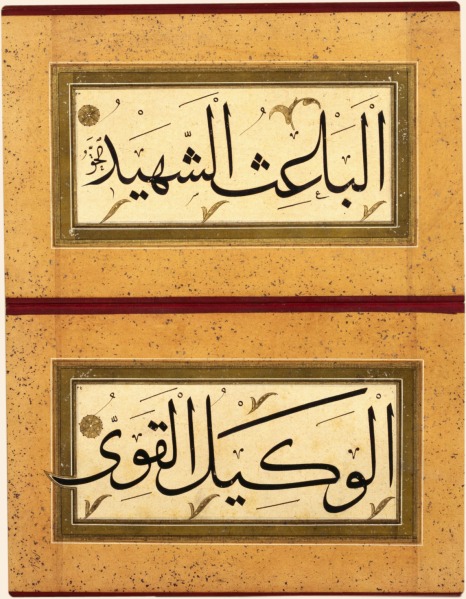 الْبَاعِثُ الشَّهِيدُ الحق
الْوَكِيلُ الْقَوِىُّ